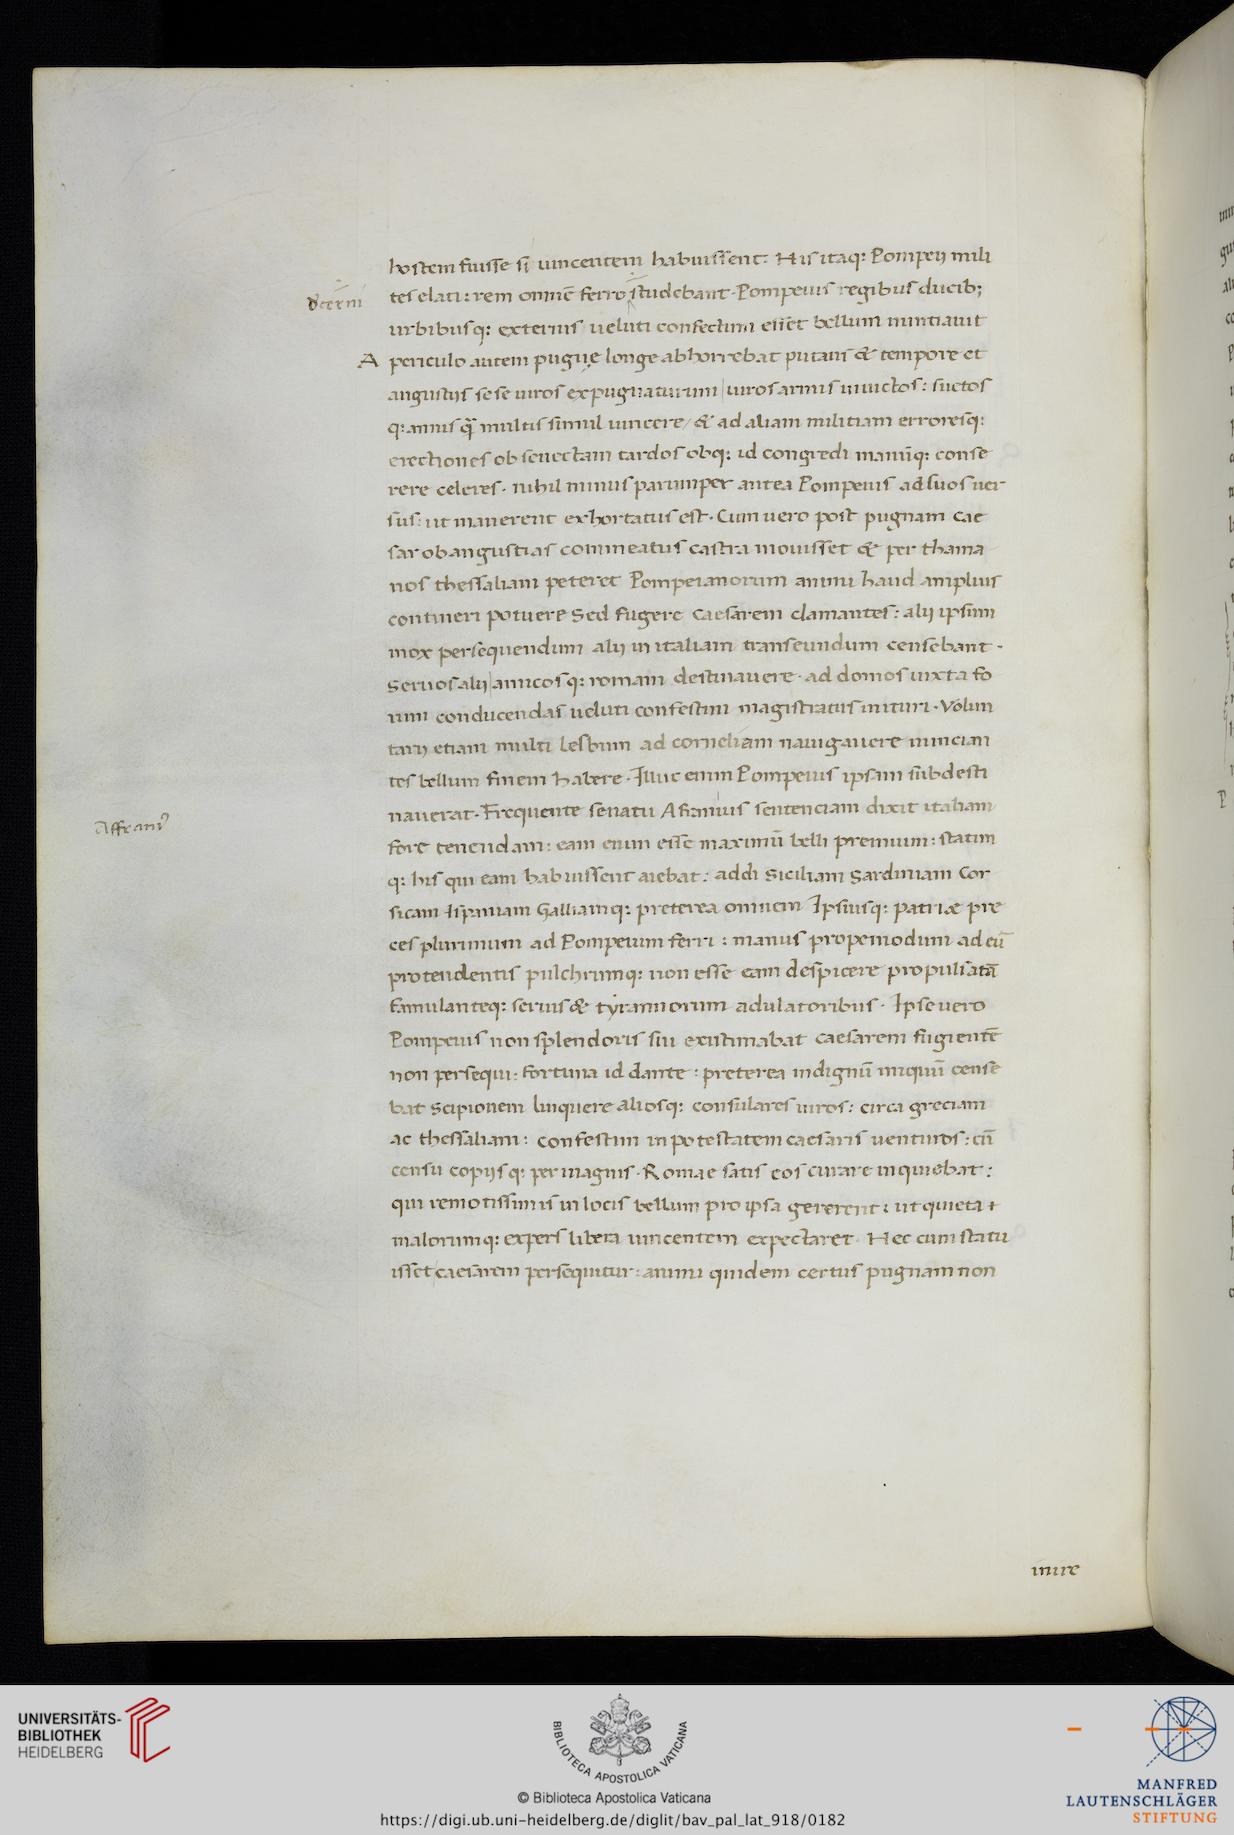 hostem fuisse si vincentem habuissent. His itaq: Pompeij mili
dc̄erni
tes elati: rem omnē ferro studebant. Pompeius regibus ducib;
urbibusq: externis veluti confectum esset bellum nuntiavit
A periculo autem pugnę longe abhorrebat putans & tempore et
angustijs sese viros expugnaturum viros armis invictos: suetos
q: annis multis simul vincere / & ad aliam militiam erroresq:
erectiones ob senectam tardos obq: id congredi manūq: conse
rere celeres. nihil minus parumper antea Pompeius ad suos ver
sus: ut manerent exhortatus est. Cum vero post pugnam cae
sar ob angustias commeatus castra movisset & per thama
nos thessaliam peteret Pompeianorum animi haud amplius
contineri potuere Sed fugere Caesarem clamantes: alij ipsum
mox persequendum alij in italiam transeundum censebant.
Servos alij amicosq: romam destinavere. ad domos iuxta fo
rum conducendas veluti confestim magistratus inituri. Volun
tarij etiam multi Lesbum ad corneliam navigavere nuncian
tes bellum finem habere. Illuc enim Pompeius ipsam subdesti
naverat. Frequente senatu Afranius sentenciam dixit italiam
Affrani⁹
fore tenendam: eam enim esse maximū belli premium: statim
q: his qui eam habuissent aiebat: addi Siciliam Sardiniam Cor
sicam Ispaniam Galliamq: preterea omnem Ipsiusq: patriae pre
ces plurimum ad Pompeium ferri: manus propemodum ad eū
protendentis pulchrumq: non esse eam despicere propulsatā
famulanteq: servis & tyrannorum adulatoribus. Ipse vero
Pompeius non splendoris sui existimabat caesarem fugientē
non persequi: fortuna id dante: preterea indignū iniquū cense
bat Scipionem linquere aliosq: consulares viros: circa greciam
ac thessaliam: confestim in potestatem caesaris venturos: cū
censu copijsq: permagnis. Romae satis eos curare inquiebat:
qui remotissimis in locis bellum pro ipsa gererent: ut quieta +
malorumq: expers libera vincentem expectaret. Hec cum statu
isset caesarem persequitur: animi quidem certus pugnam non
inire
UNIVERSITÄTS-
BIBLIOTHEK
HEIDELBERG
BIBLIOTECA APOSTOLICA VATICANA
© Biblioteca Apostolica Vaticana
https://digi.ub.uni-heidelberg.de/diglit/bav_pal_lat_918/0182
MANFRED
LAUTENSCHLÄGER
STIFTUNG